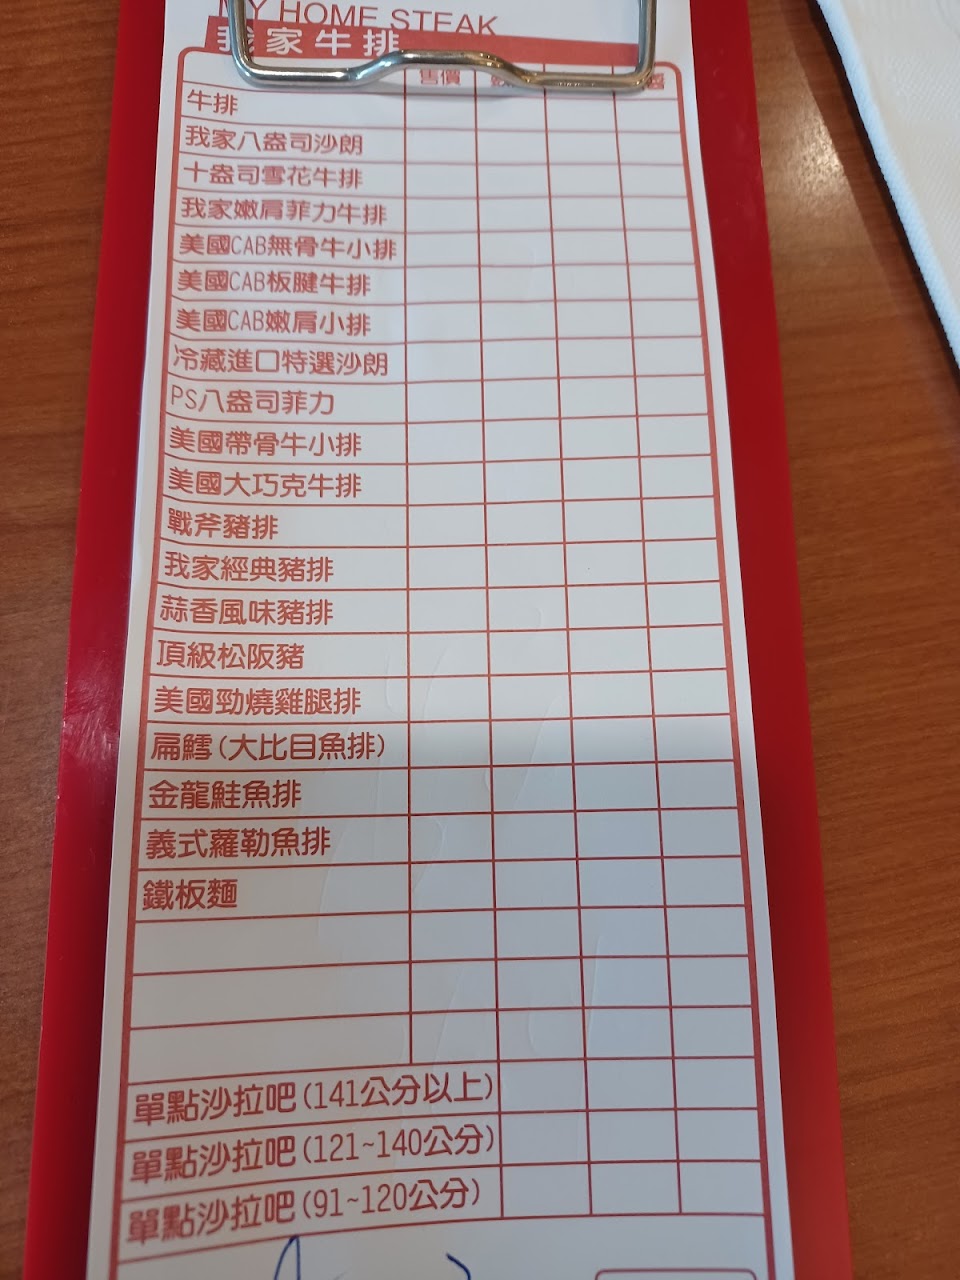 MY HOME STEAK
我家牛排
售價
牛排
我家八盎司沙朗
十盎司雪花牛排
我家嫩肩菲力牛排
美國CAB無骨牛小排
美國CAB板腱牛排
美國CAB嫩肩小排
冷藏進口特選沙朗
PS八盎司菲力
美國帶骨牛小排
美國大巧克牛排
戰斧豬排
我家經典豬排
蒜香風味豬排
頂級松阪豬
美國勁燒雞腿排
扁鱈(大比目魚排)
金龍鮭魚排
義式蘿勒魚排
鐵板麵
單點沙拉吧(141公分以上)
單點沙拉吧(121~140公分)
單點沙拉吧(91~120公分)